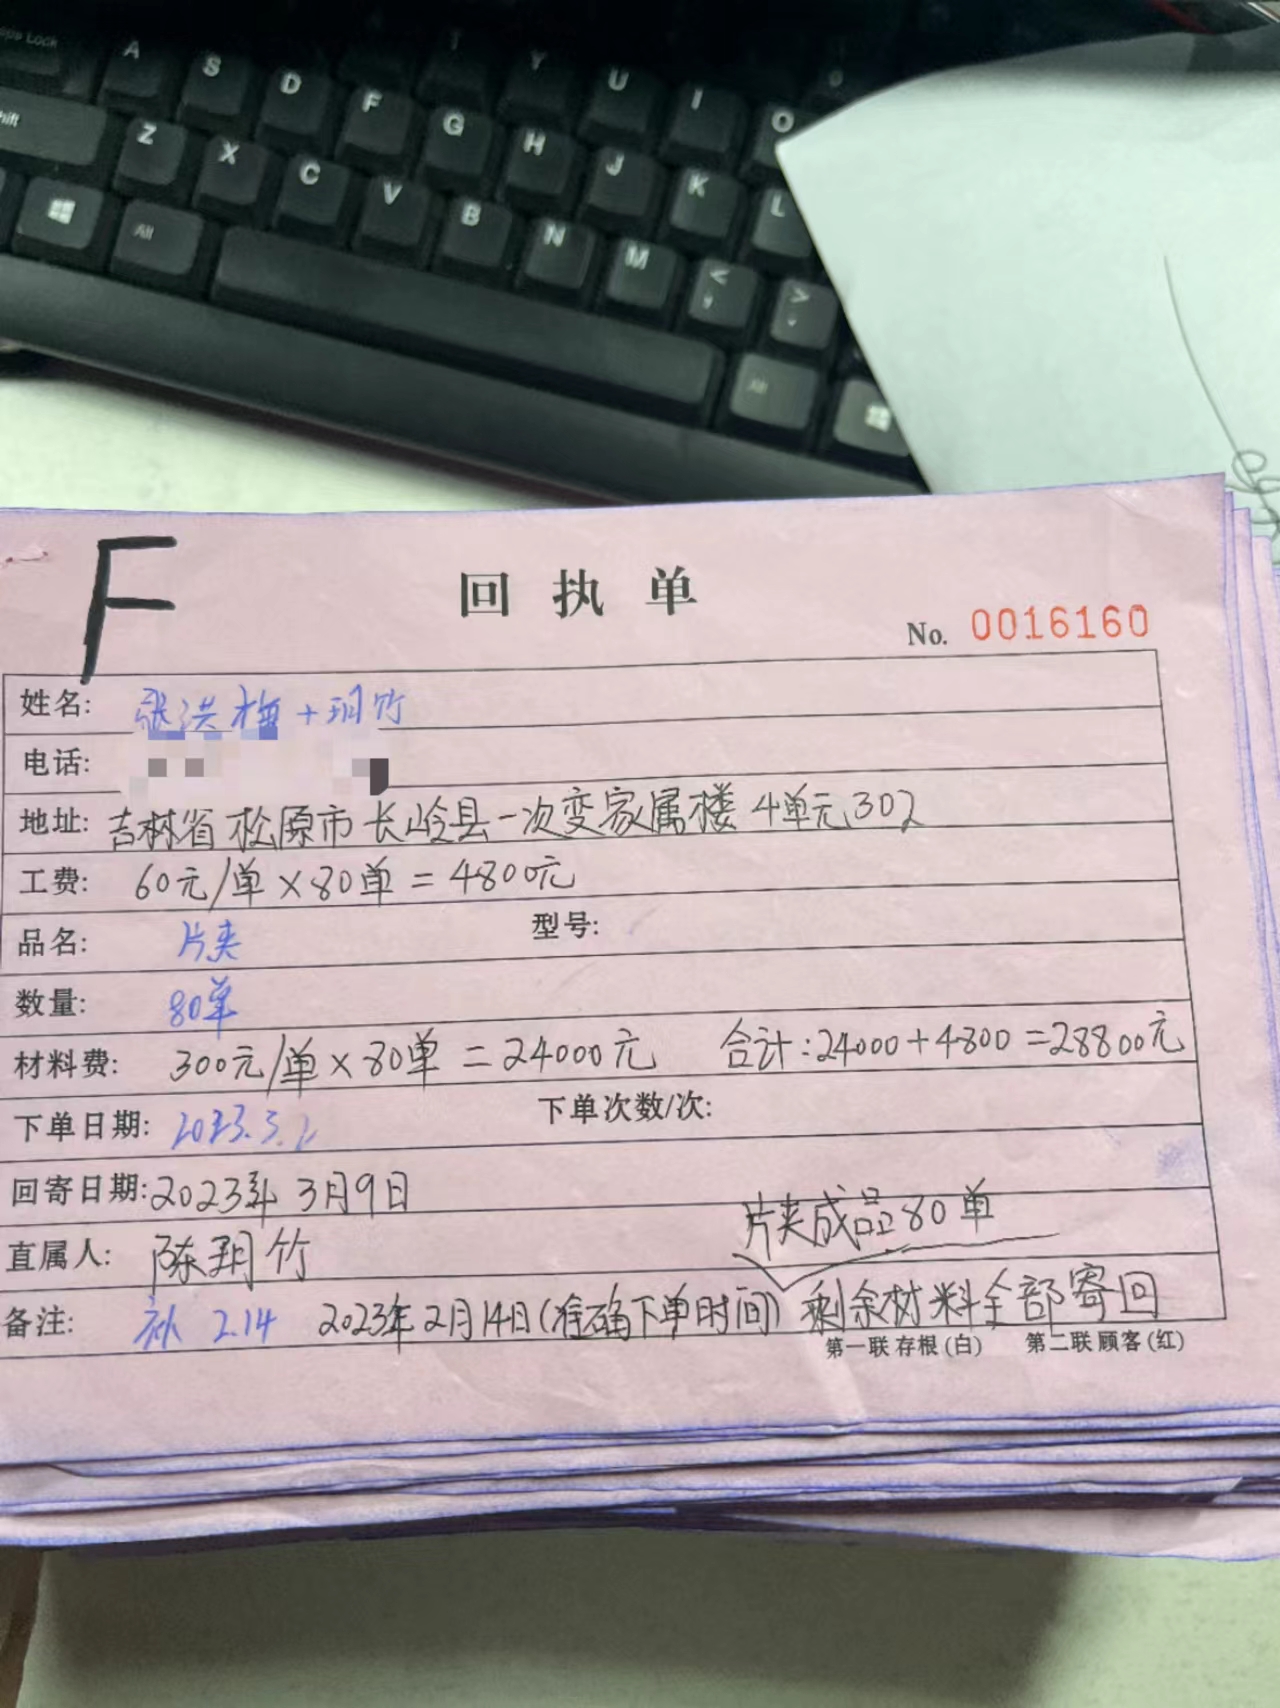 Caps Lock A S D F G H J K L
Y U I O
Shift Z X C V B N M < , > .
Alt Alt
F
回执单
No. 0016160
姓名: 张洪梅+玥竹
电话:
地址: 吉林省松原市长岭县一次变家属楼4单元302
工费: 60元/单×80单=4800元
品名: 片夹 型号:
数量: 80单
材料费: 300元/单×80单=24000元 合计:24000+4800=28800元
下单日期: 2023.3.2 下单次数/次:
回寄日期: 2023年3月9日
片夹成品80单
直属人: 陈玥竹
备注: 补 2.14 2023年2月14日(准确下单时间) 剩余材料全部寄回
第一联 存根(白) 第二联 顾客(红)